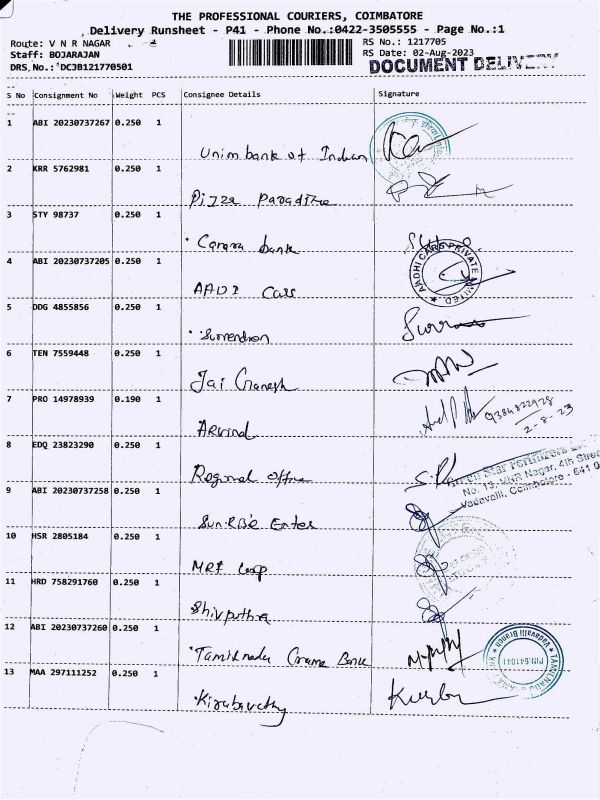 THE PROFESSIONAL COURIERS, COIMBATORE
Delivery Runsheet - P41 - Phone No.:0422-3505555 - Page No.:1
Route: V N R NAGAR RS No.: 1217705
Staff: BOJARAJAN RS Date: 02-Aug-2023
DRS No.: 'DCJB121770501 DOCUMENT DELIVERY
S No Consignment No Weight PCS Consignee Details Signature
1 ABI 20230737267 0.250 1
Union bank of Indian
2 KRR 5762981 0.250 1
Pizza Paradise
3 STY 98737 0.250 1
Canara bank
4 ABI 20230737205 0.250 1
AADI Cars
AADHI CARS PRIVATE LIMITED
5 DDG 4855856 0.250 1
Surrendran
6 TEN 7559448 0.250 1
Jai Ganesh
7 PRO 14978939 0.190 1
Arvind
9384822928
2-8-23
8 EDQ 23823290 0.250 1
Regional Office
No. 13, VNR Nagar, 4th Street
Vadavalli, Coimbatore - 641 0
9 ABI 20230737258 0.250 1
Enter
10 HSR 2805184 0.250 1
MRF Corp
11 HRD 758291760 0.250 1
Shivputhra
12 ABI 20230737260 0.250 1
Tamilnadu Grama Bank
Vadavalli Branch
PIN:641041
13 MAA 297111252 0.250 1
Kirubavathy